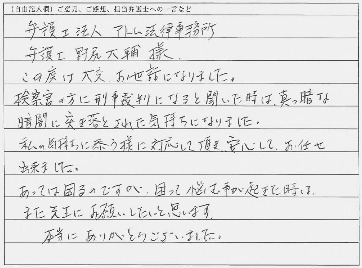 (自由記入欄)ご意見、ご感想、担当弁護士への一言など
弁護士法人 アトム法律事務所
弁護士 野尻大輔 様
この度は大変お世話になりました。
検察官の方に刑事裁判になると聞いた時は、真っ暗な
暗闇に突き落とされた気持ちになりました。
私の気持ちに添う様に対応して頂き安心して、お任せ
出来ました。
あっては困るのですが、困って悩む事が起きた時は、
また先生にお願いしたいと思います。
本当にありがとうございました。